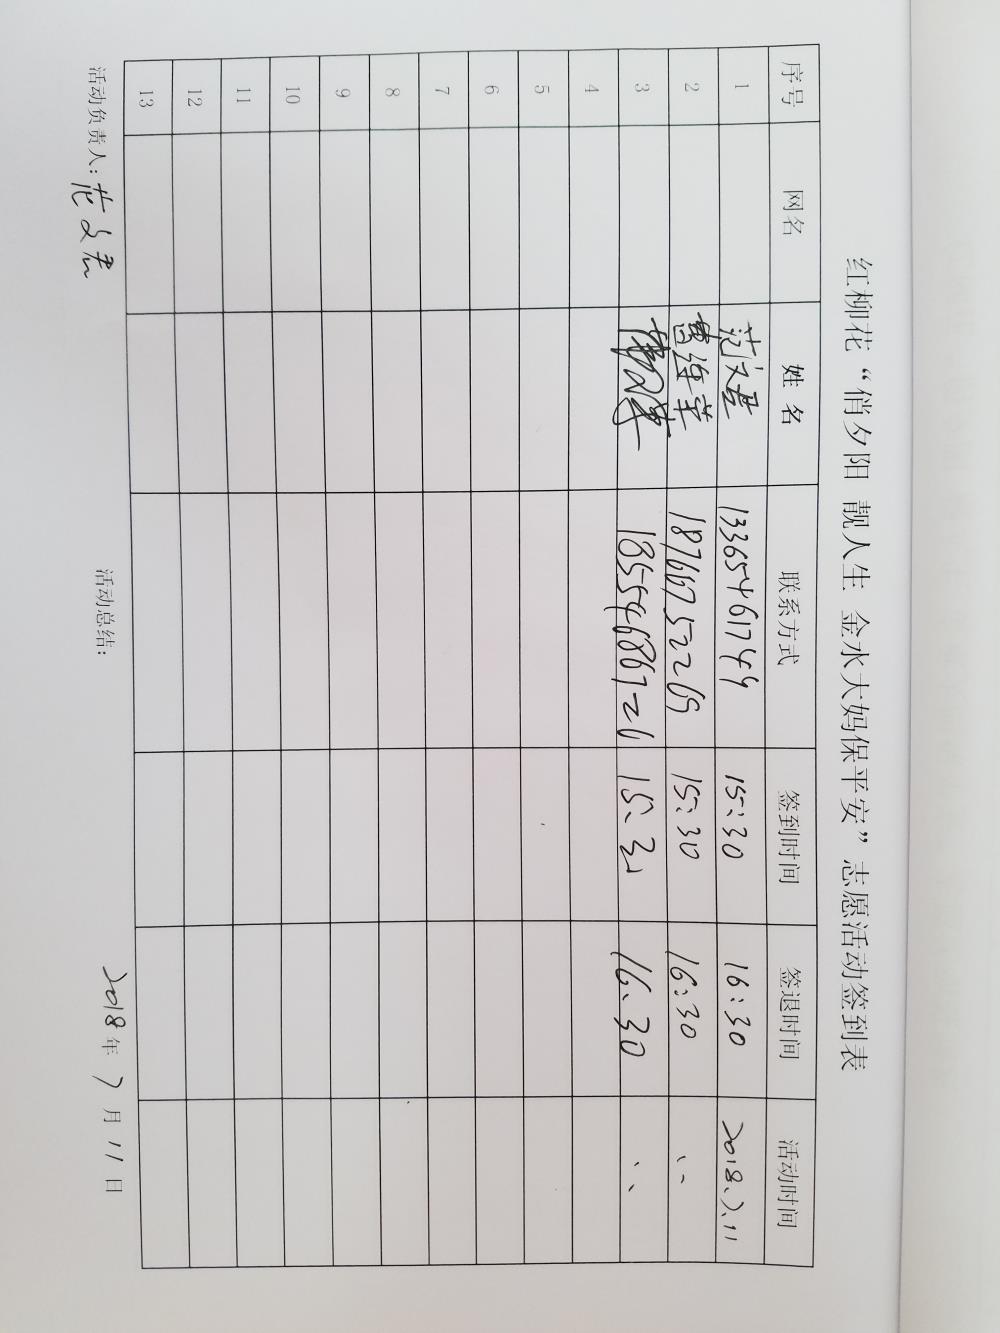 红柳花“俏夕阳 靓人生 金水大妈保平安”志愿活动签到表
序号 网名 姓名 联系方式 签到时间 签退时间 活动时间
1 范文君 13365461749 15:30 16:30 2018.7.11
2 曹连苹 18766752269 15:30 16:30 、、
3 18554686726 15:30 16:30 、、
4
5
6
7
8
9
10
11
12
13
活动负责人: 范文君 活动总结: 2018年7月11日